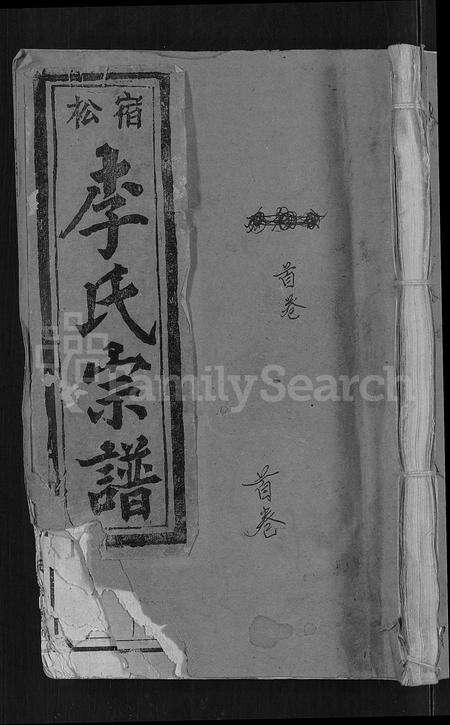 宿松
李氏宗譜
首卷
首卷
FamilySearch